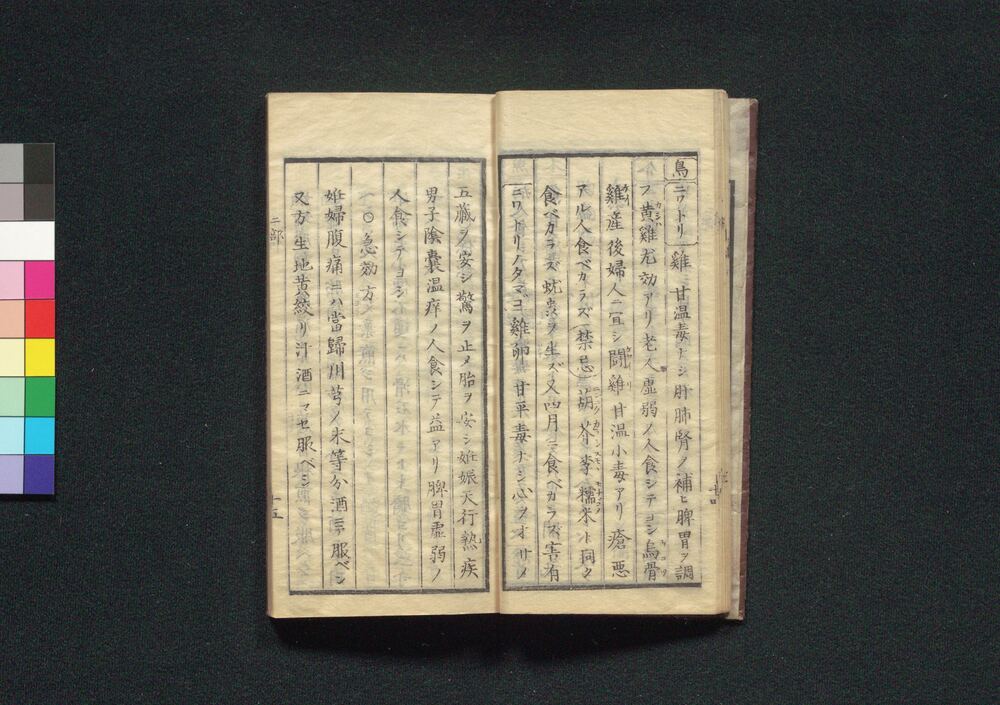 鳥 ニワトリ 雞 甘温毒ナシ肝肺腎ノ補ヒ脾胃ヲ調
フ黄雞尤効アリ老人虚弱ノ人食シテヨシ烏骨
雞産後婦人ニ宜シ闘雞甘温小毒アリ瘡悪
アル人食ベカラズ(禁忌)葫芥李糯米ト同ク
食ベカラズ蚘虫ヲ生ズ又四月ニ食ベカラズ害有
ニワトリノタマゴ 雞卵 甘平毒ナシ心ヲオサメ
五臓ヲ安シ驚ヲ止メ胎ヲ安シ妊娠天行熱疾
男子陰嚢温痒ノ人食シテ益アリ脾胃虚弱ノ
人食シテヨシ
○急効方
妊婦腹痛ニハ當歸川芎ノ末等分酒ニテ服ベシ
又方生地黄絞リ汁酒ニマセ服ベシ
ニ部
十五